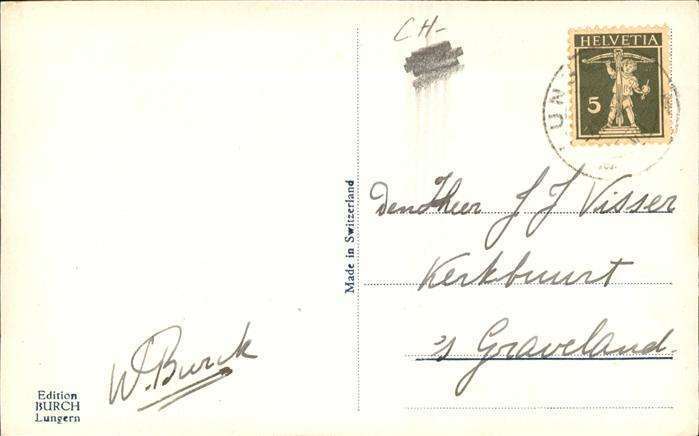 CH-
HELVETIA
5
Made in Switzerland
Den Heer J J Visser
Kerkbuurt
's Graveland.
W. Burck
Edition
BURCH
Lungern